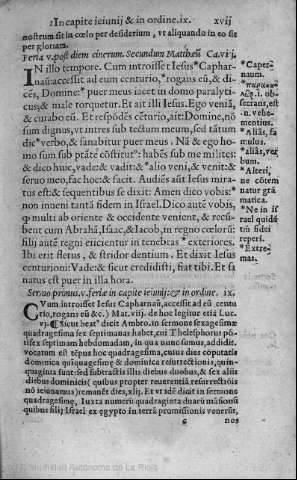 In capite ieiunij & in ordine. ix. xvij
nostrum sit in cœlo per desiderium, vt aliquando in eo sit
per gloriam.
Feria v. post diem cinerum. Secundum Matthæū Ca. vi
IN illo tempore. Cum introisset Iesus *Caphar
naū: accessit ad eum centurio, *rogans eū, & di
cēs, Domine* puer meus iacet in domo paralyti-
cus: & male torquetur. Et ait illi Iesus. Ego veniā,
& curabo eū. Et respōdēs cēturio, ait: Domine, nō
sum dignus, vt intres sub tectum meum, sed tātum
dic *verbo, & sanabitur puer meus. Nā & ego ho-
mo sum sub ptāte cōstitut*: habēs sub me milites:
& dico huic, vade: & vadit: & *alio veni, & venit: &
seruo meo, fac hoc: & facit. Audiēs aūt Iesus mira-
tus est: & sequentibus se dixit: Amen dico vobis:*
non inueni tantā fidem in Israel. Dico autē vobis,
q̃ multi ab oriente & occidente venient, & recū-
bent cum Abrahā, Isaac, & Iacob, in regno cœlorū:
filij autē regni eiicientur in tenebras * exteriores.
Ibi erit fletus, & stridor dentium. Et dixit Iesus
centurioni: Vade: & sicut credidisti, fiat tibi. Et sa
natus est puer in illa hora.
*Caper-
naum.
*παρακα
obsecrans, est
n. vehe-
mentius.
*Aliâs, fa
mulus.
*aliâs, ver
bum.
*Alteri,
ne cōtem
natur grā
matica.
*Ne in Is
rael quidē
tm̄ fidei
reperi.
*Extre-
mas.
Sermo primus. v. feriæ in capite ieiunij: & in ordine. ix.
CVm introisset Iesus Capharnaū, accessit ad eū centu
rio, rogans eū &c.) Mat. vij. de hoc legitur etiā Luc.
vj. ¶ sicut beat* dicit Ambro. in sermone sexagesimæ
quadragesima sex septimanas habet, cui Thelesphorus pō-
tifex septimam hebdomadam, in qua nunc sumus, addidit.
vocatum est tēpus hoc quadragesima, cuius dies coputatis
dominica quīquagesimę & dominica resurrectionis, quin-
quaginta sunt: sed subtractis illis diebus duobus, & sex aliis
diebus dominicis (quibus propter reuerentiā resurrectiōis
nō ieiunamus) remanēt dies, xlij. Et vt idē dicit in sermone
quadragesimę, Iuxta numerū quadraginta duarū māsionū
quibus filij Israel ex egypto in terrā promissionis venerūt,
c nos
Comunidad Autónoma de La Rioja